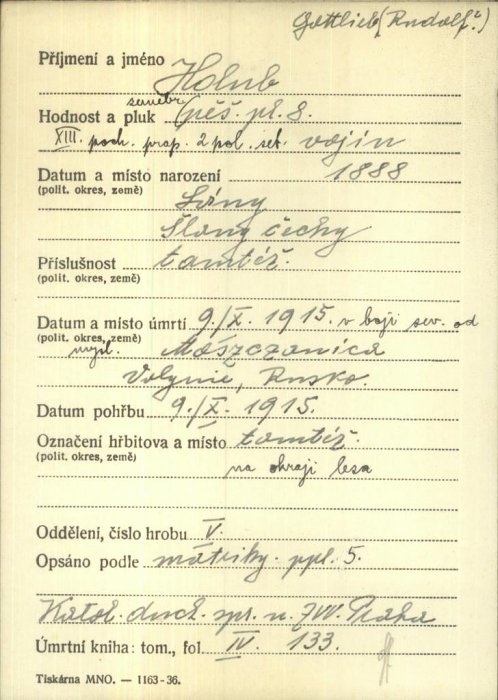 Gottlieb (Rudolf?)
Příjmení a jméno Holub
Hodnost a pluk zeměbr. pěš. pl. 8.
XIII. poch. prap. 2 pol. set. vojín
Datum a místo narození 1888
(polit. okres, země) Lány
Slaný Čechy
Příslušnost tamtéž.
(polit. okres, země)
Datum a místo úmrtí 9./X. 1915. v boji sev. od
(polit. okres, země) mysl. Moszczanica
Volynie, Rusko.
Datum pohřbu 9./X. 1915.
Označení hřbitova a místo tamtéž.
(polit. okres, země)
na okraji lesa
Oddělení, číslo hrobu V.
Opsáno podle matriky. ppl. 5.
Katol. duch. spr. u ZVV. Praha
Úmrtní kniha: tom., fol. IV. 133.
Tiskárna MNO. — 1163-36.